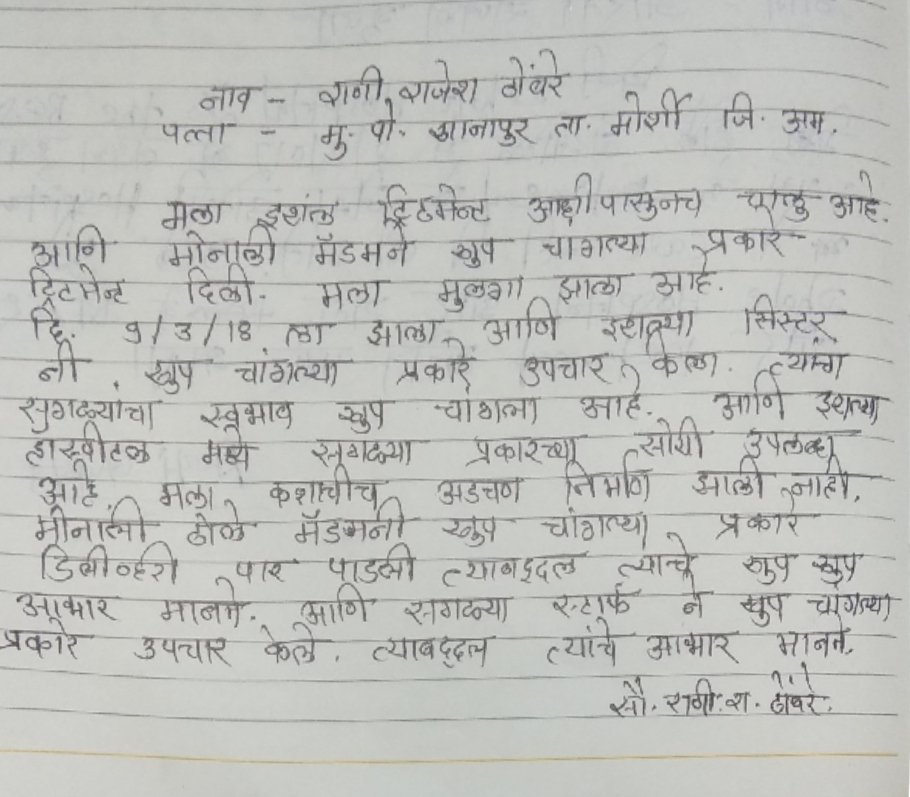 नाव - राणी राजेश ठोंबरे
पत्ता - मु. पो. खानापुर ता. मोर्शी जि. अम.
मला इथलं ट्रिटमेन्ट आधीपासुनच चालु आहे.
आणि मोनाली मॅडमने खुप चांगल्या प्रकारे
ट्रिटमेन्ट दिली. मला मुलगा झाला आहे.
दि. 9/3/18 ला झाला. आणि इथल्या सिस्टर
नी खुप चांगल्या प्रकारे उपचार केला. त्यांचा
सुगळ्यांचा स्वभाव खुप चांगला आहे. आणि इथल्या
हास्पीटल मध्ये सगळ्या प्रकारच्या सोयी उपलब्ध
आहे. मला कशाचीच अडचण निर्माण झाली नाही.
मोनाली ढोले मॅडमनी खुप चांगल्या प्रकारे
डिलीव्हरी पार पाडली त्याबद्दल त्यांचे खुप खुप
आभार मानते. आणि सगळ्या स्टार्फ ने खुप चांगल्या
प्रकारे उपचार केले. त्याबद्दल त्यांचे आभार मानते.
सौ. राणी. रा. ठोंबरे.